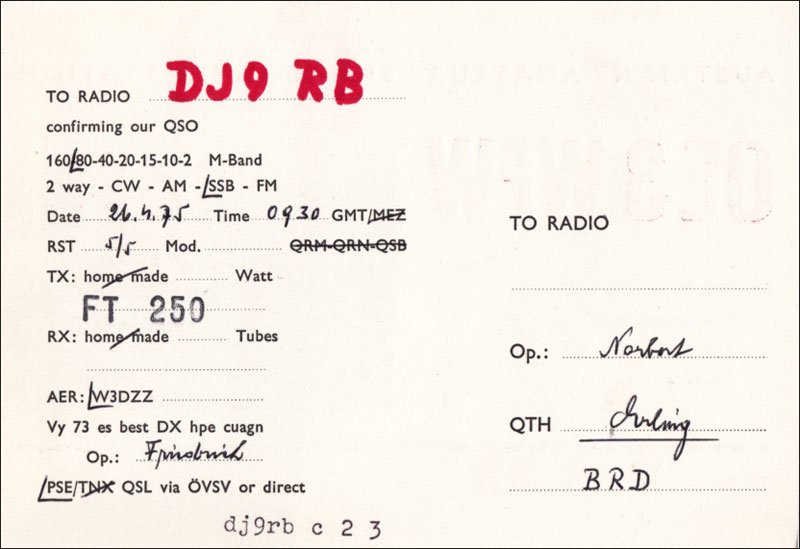 TO RADIO DJ9 RB
confirming our QSO
160/80-40-20-15-10-2 M-Band
2 way - CW - AM - SSB - FM
Date 26.4.75 Time 0930 GMT/MEZ
RST 5/5 Mod. QRM-QRN-QSB
TX: home made Watt
FT 250
RX: home made Tubes
AER: W3DZZ
Vy 73 es best DX hpe cuagn
Op.: Friedrich
PSE/TNX QSL via ÖVSV or direct
dj9rb c 2 3
TO RADIO
Op.: Norbert
QTH
BRD